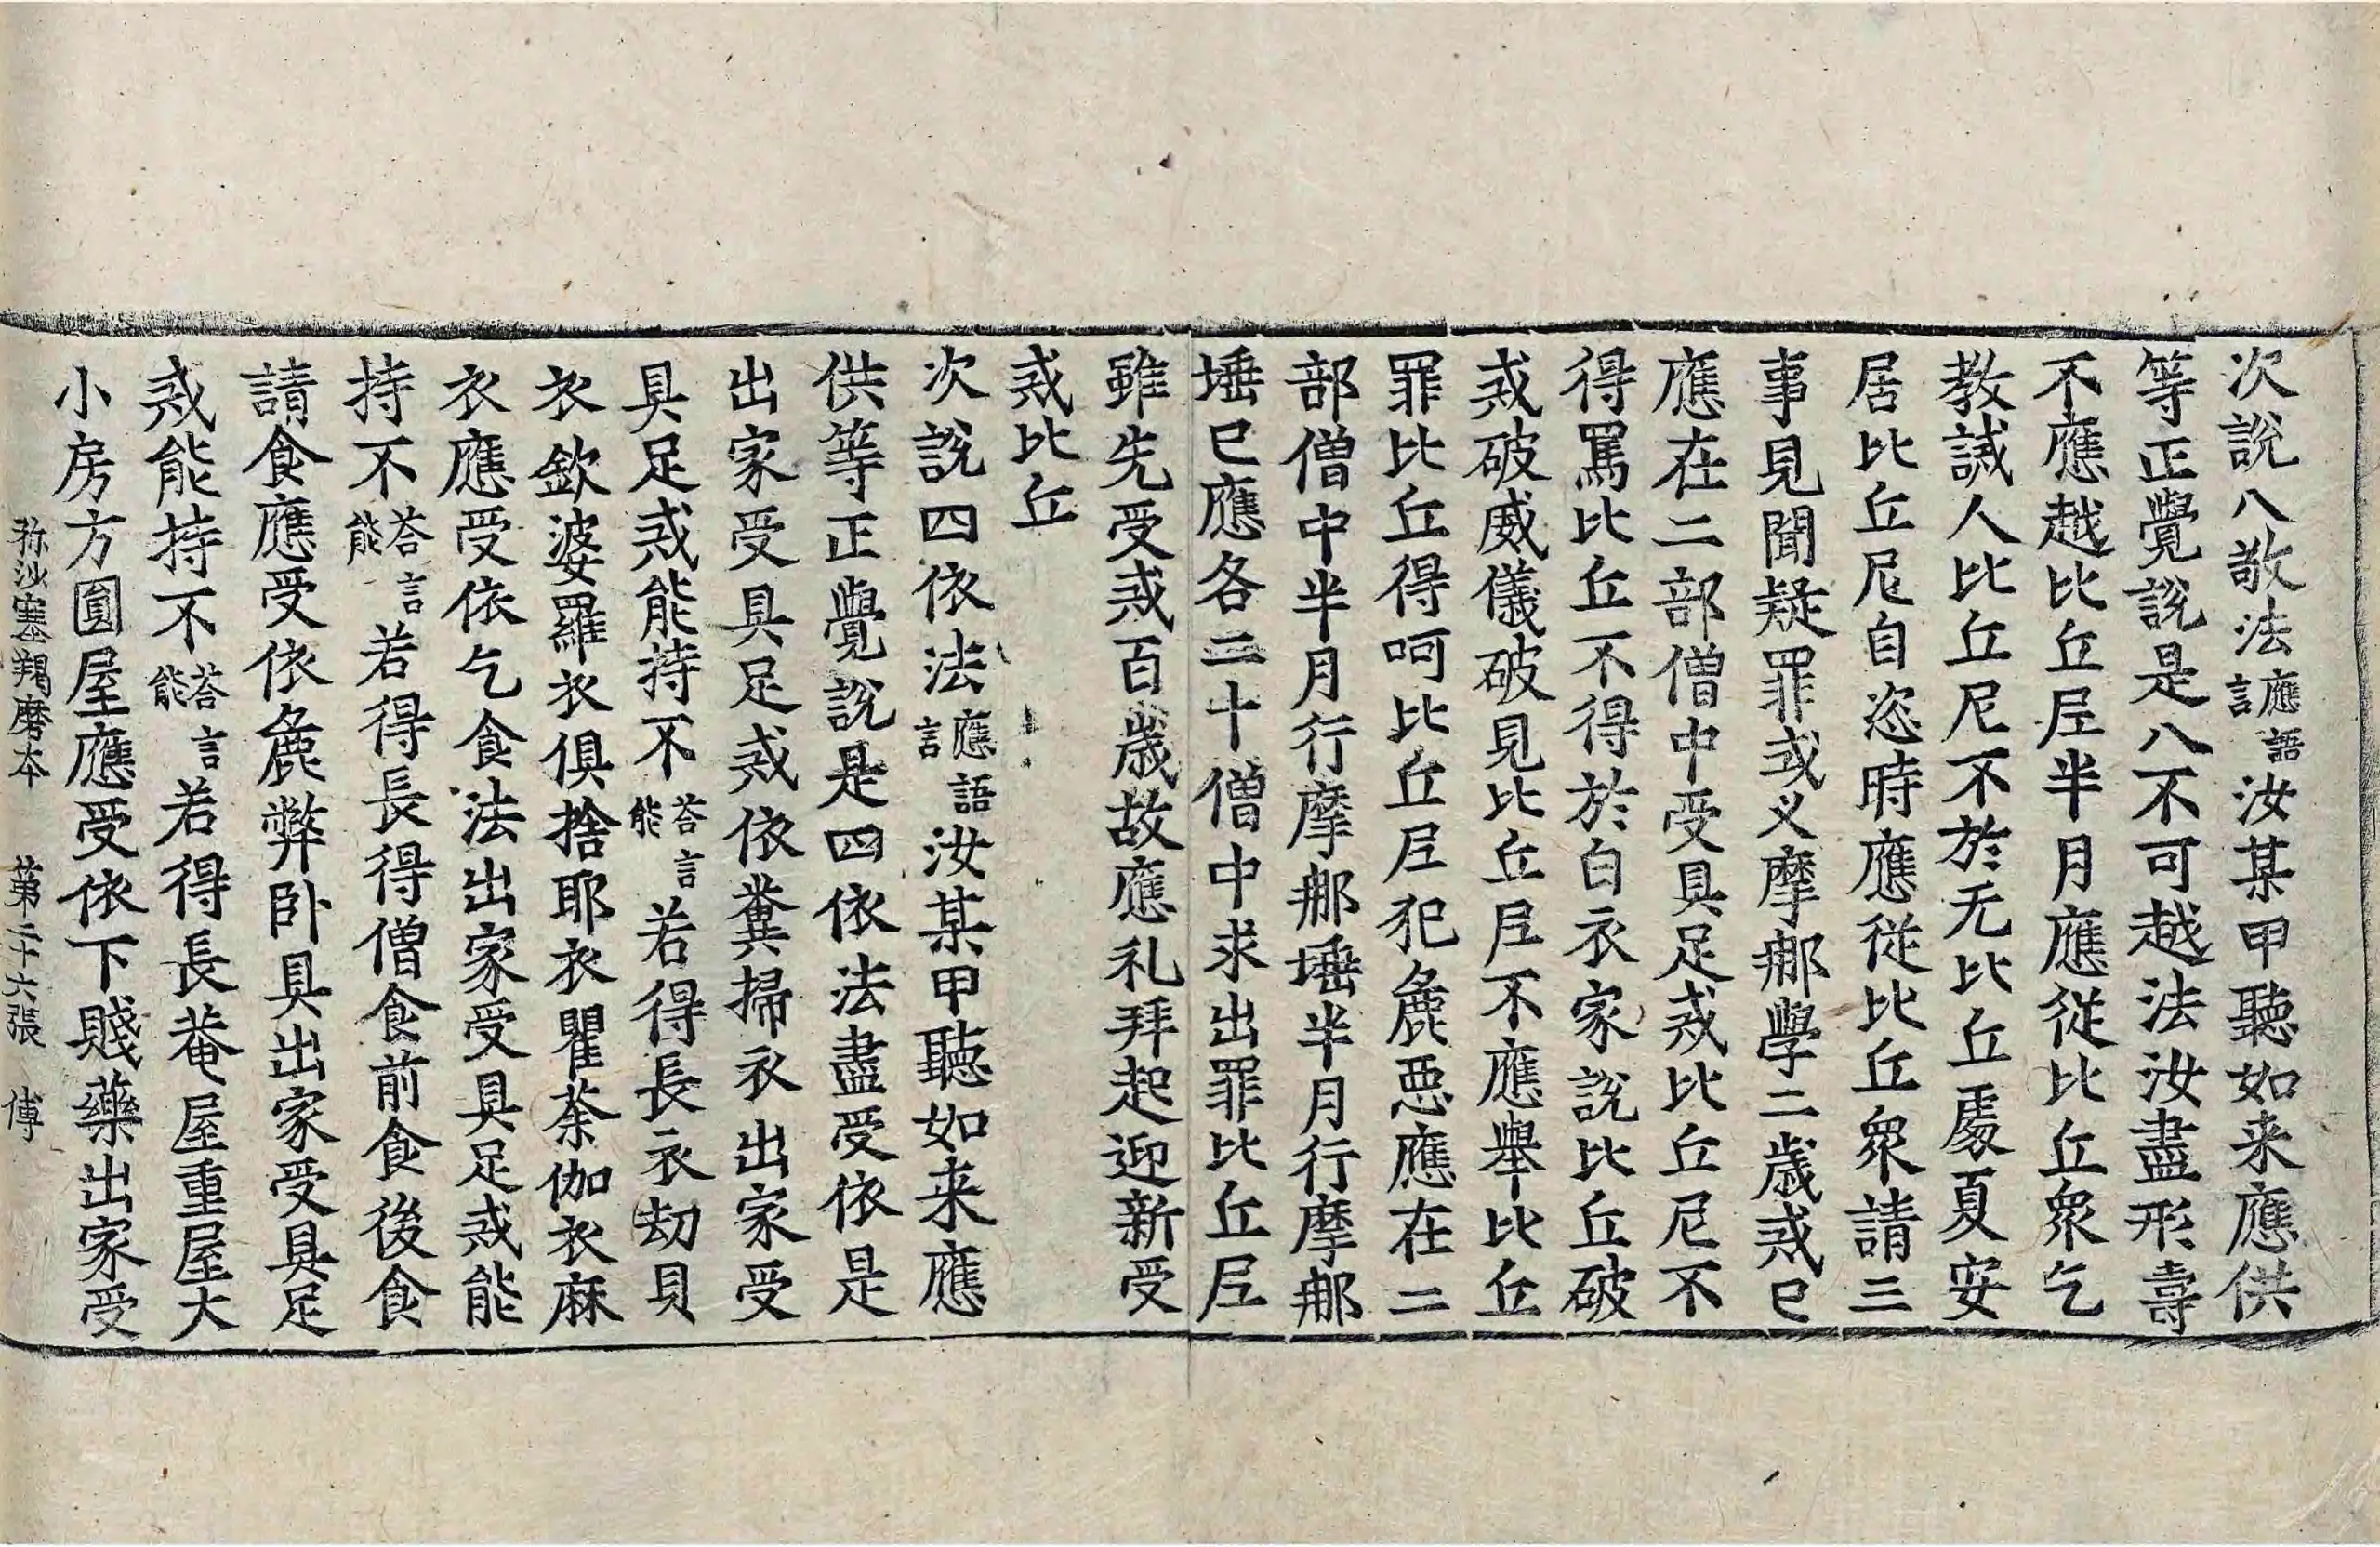 次說八敬法應語言汝某甲聽如来應供
等正覺說是八不可越法汝盡形壽
不應越比丘尼半月應從比丘眾乞
教誡人比丘尼不於无比丘處夏安
居比丘尼自恣時應從比丘眾請三
事見聞疑罪或义摩那學二歲戒已
應在二部僧中受具足戒比丘尼不
得罵比丘不得於白衣家說比丘破
戒破威儀破見比丘尼不應舉比丘
罪比丘得呵比丘尼犯麁惡應在二
部僧中半月行摩那埵半月行摩那
埵已應各二十僧中求出罪比丘尼
雖先受戒百歲故應礼拜起迎新受
戒比丘
次說四依法應語言汝某甲聽如来應
供等正覺說是四依法盡受依是
出家受具足戒依糞掃衣出家受
具足戒能持不荅言能若得長衣劫貝
衣欽婆羅衣俱捨耶衣瞿荼伽衣麻
衣應受依乞食法出家受具足戒能
持不荅言能若得長得僧食前食後食
請食應受依麁弊卧具出家受具足
戒能持不荅言能若得長菴屋重屋大
小房方圓屋應受依下賤藥出家受
弥沙塞羯磨本 第二十六張 傅